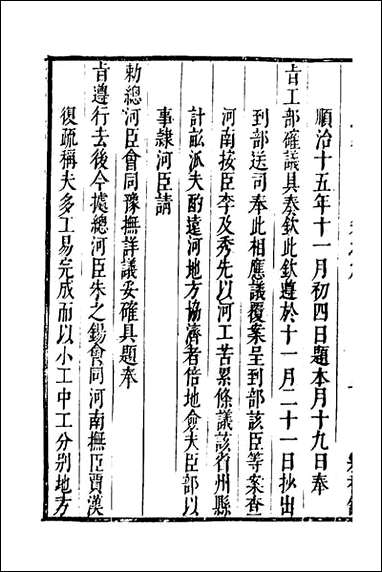 順治十五年十一月初四日題本月十九日奉
旨工部確議具奏欽此欽遵於十一月二十一日抄出
到部送司奉此相應議覆案呈到部該臣等案查
河南按臣李及秀先以河工苦累條議該省州縣
計畝派夫酌遠河地方協濟者倍地僉夫臣部以
事隸河臣請
勅總河臣會同豫撫詳議妥確具題奉
旨遵行去後今據總河臣朱之錫會同河南撫臣賈漢
復疏稱夫多工易完成而以小工中工分别地方